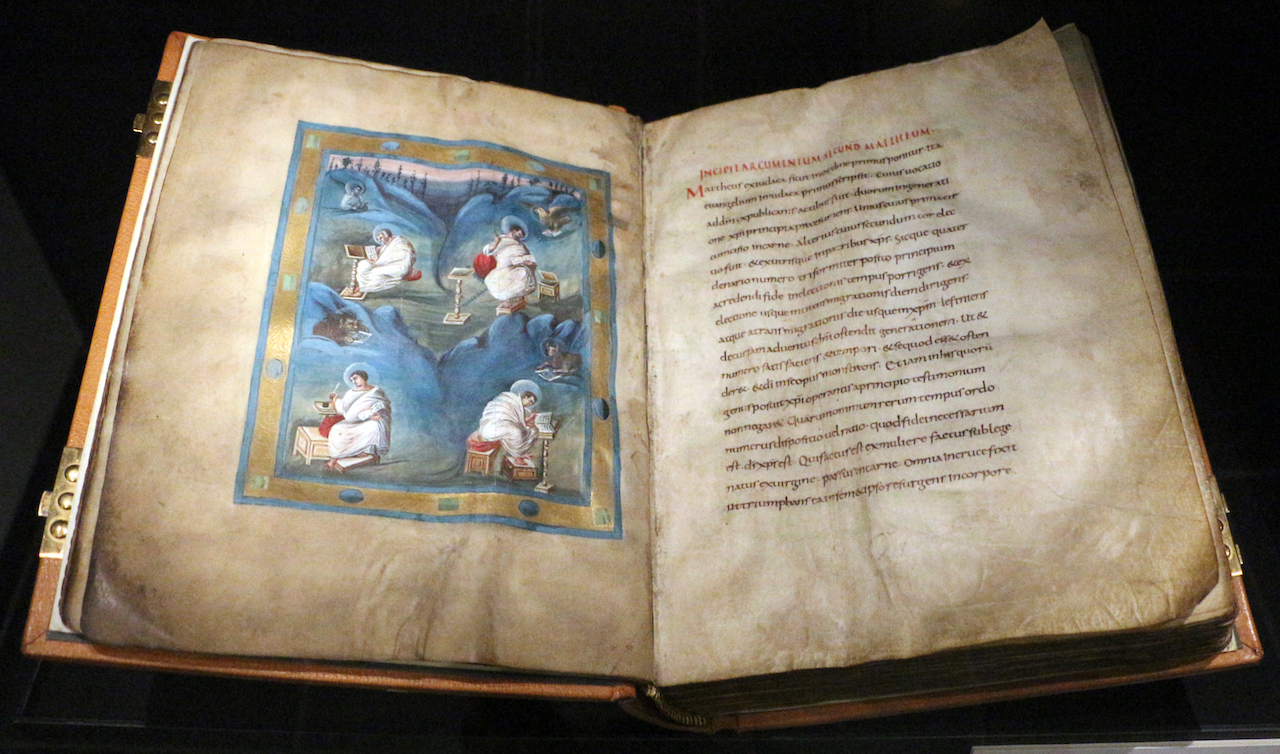 INCIPIT ARGUMENTUM SECUND MATTHEUM.
Mattheus ex iudaea sicut in ordine primus ponitur. Ita
euangelium in iudaea primus scripsit. Cuius uocatio
ad dm ex publicanis actibus fuit. duorum in generati
one xpi principia praesumens. Unius cuius prima cir
cumcisio in carne. Alterius cuius secundum cor elec
tio fuit. & ex utrisque in patribus xps. Sicque quater
denario numero triformiter posito principium
a credendi fide in electionis tempus porrigens. & ex
electione usque in transmigrationis diem dirigens
atque a transmigrationis die usque in xpm definiens
decursam aduentus dni ostendit generationem. Ut &
numero satisfaciens & tempori. & se quod ess& osten
der&. & di in se opus monstrans. Etiam in his quorū
genus posuit xpi operantis a principio testimonium
non negar&. Quarum omnium rerum tempus ordo
numerus dispositio uel ratio. quod fidei necessarium
est. ds xps est. Qui factus est ex muliere factus sub lege
natus ex uirgine. passus in carne. Omnia in cruce fixit
ut triumphans ea in semetipso resurgens in corpore.